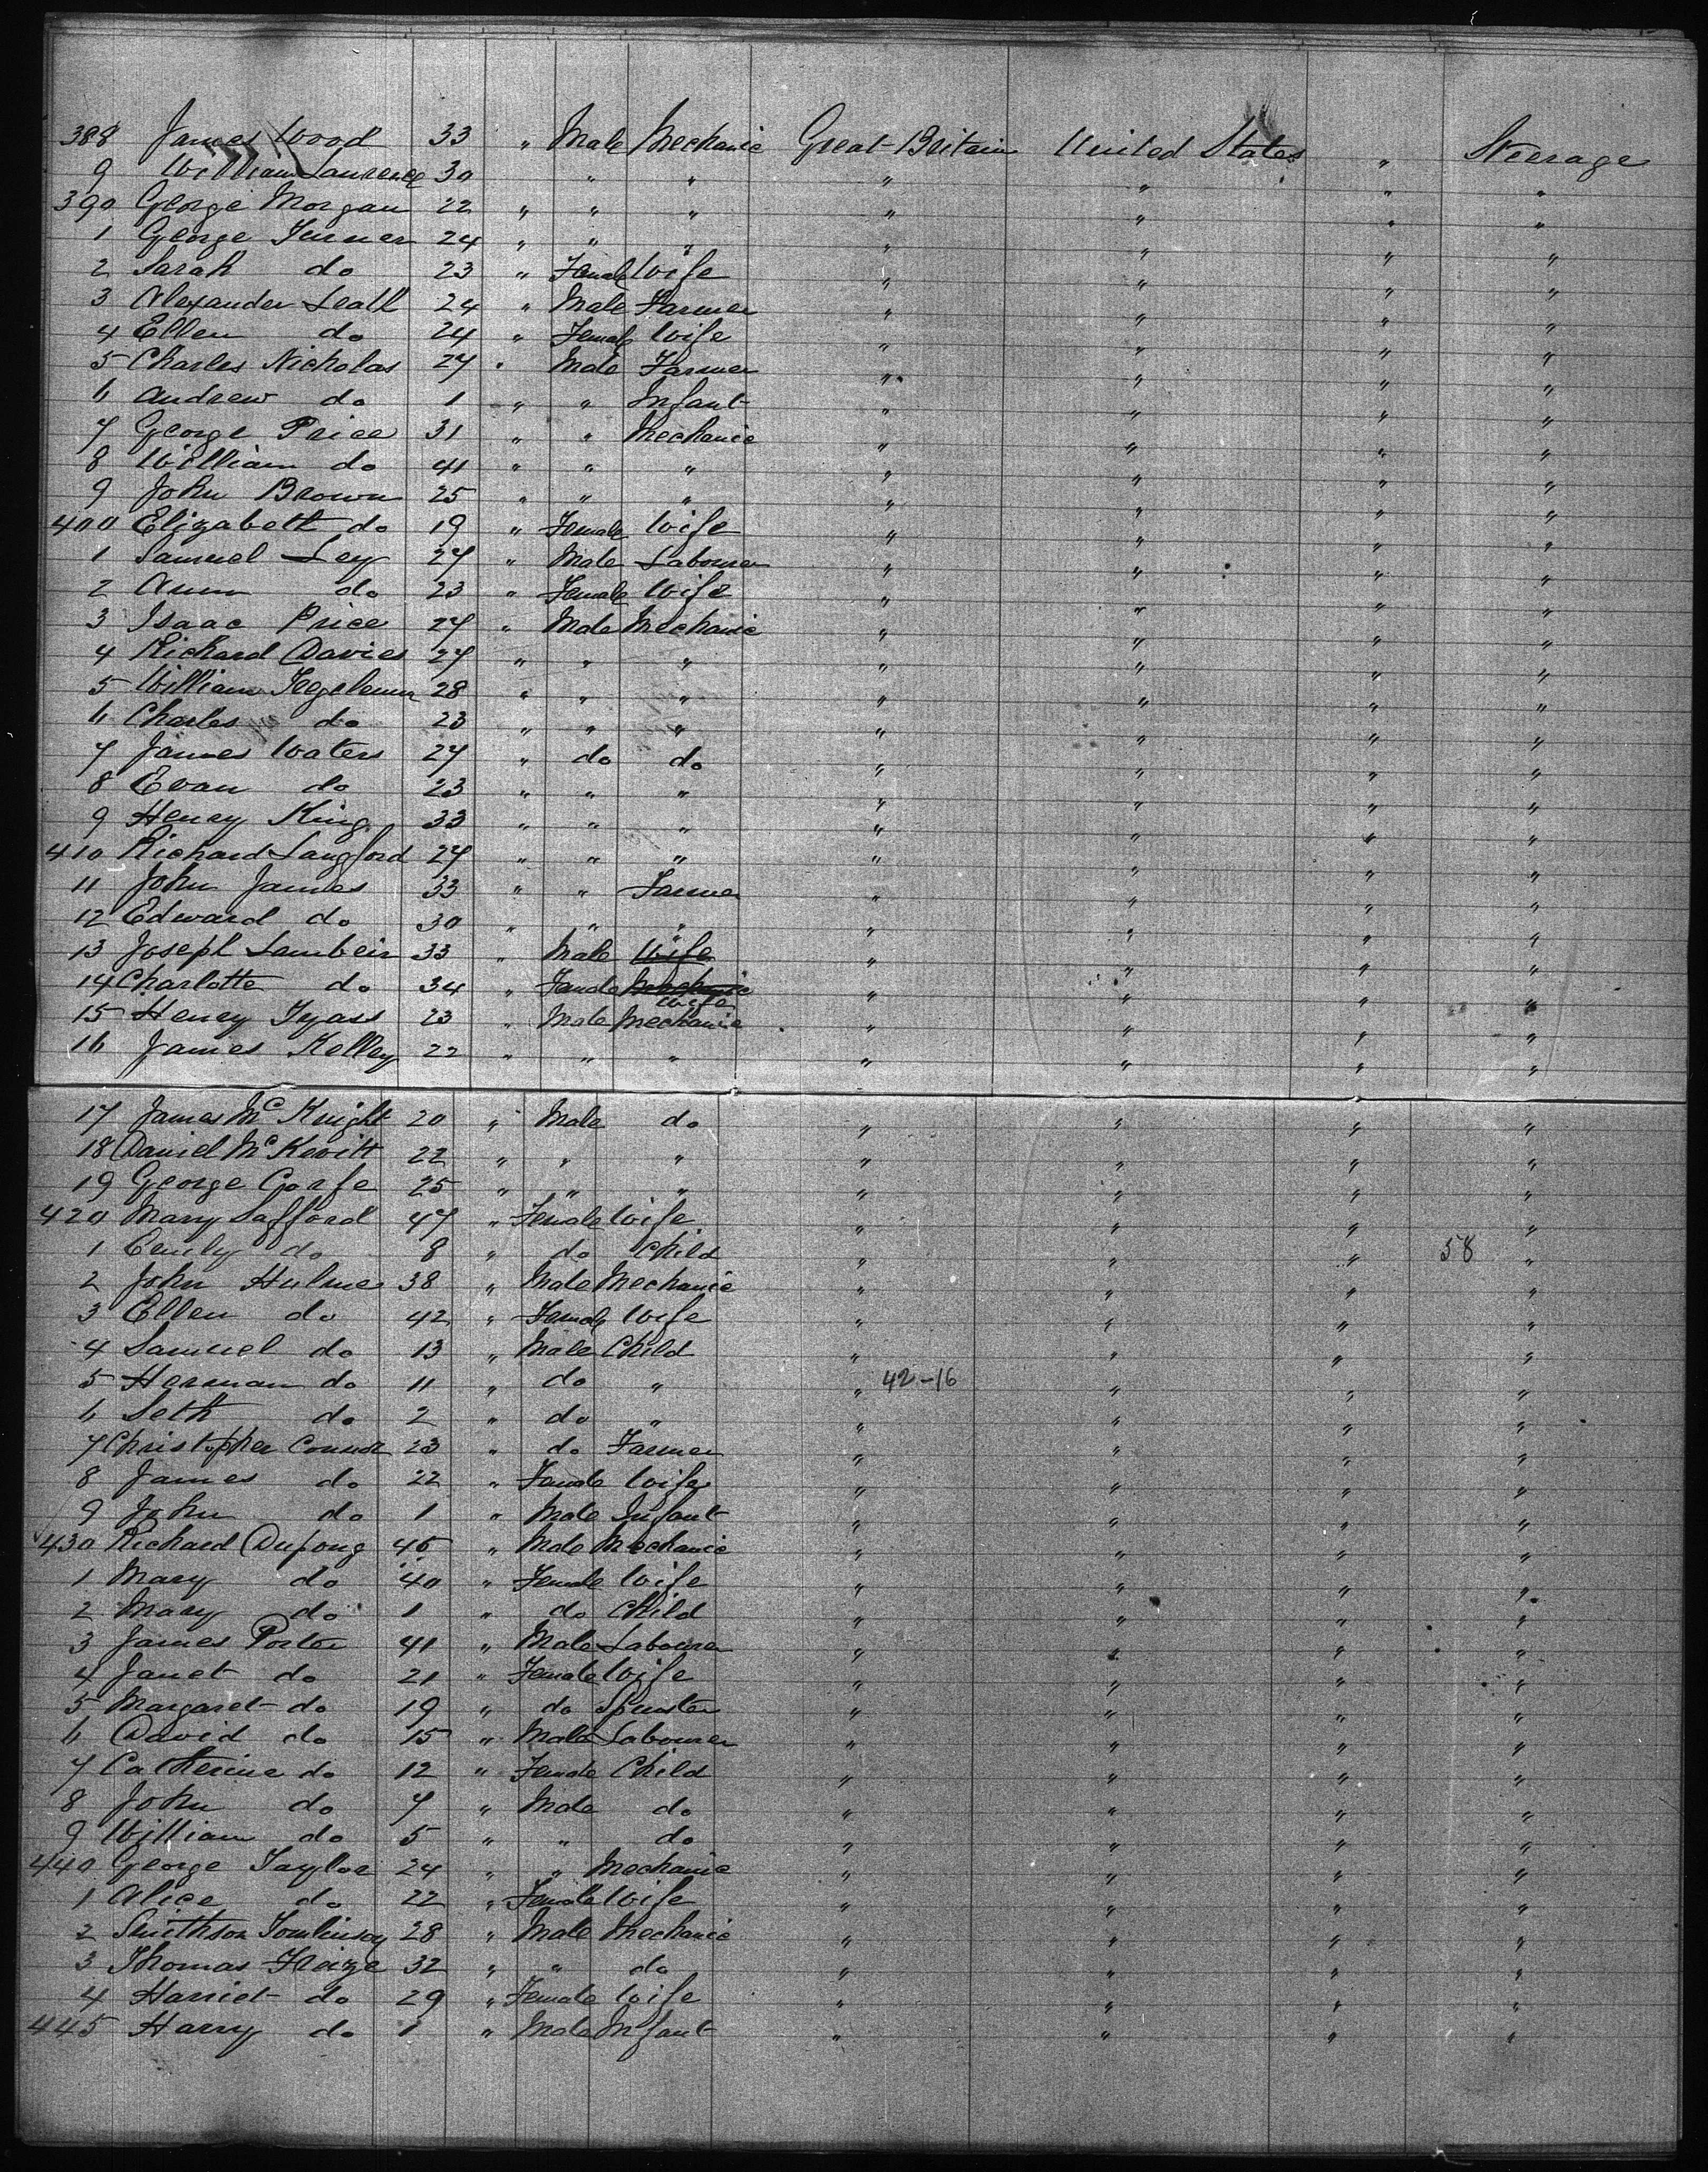 388 James Wood 33 " Male Mechanic Great Britain United States " Steerage
9 William Laurence 30 " " " " " "
390 George Morgan 22 " " " " " " "
1 George Turner 24 " " " " " " "
2 Sarah do 23 " Female Wife " " " "
3 Alexander Leath 24 " Male Farmer " " " "
4 Ellen do 24 " Female Wife " " " "
5 Charles Nicholas 27 " Male Farmer " " " "
6 Andrew do 1 " " Infant " " " "
7 George Price 31 " " Mechanic " " " "
8 William do 41 " " " " " " "
9 John Brown 25 " " " " " " "
400 Elizabeth do 19 " Female Wife " " " "
1 Samuel Ley 27 " Male Labourer " " " "
2 Ann do 23 " Female Wife " " " "
3 Isaac Price 27 " Male Mechanic " " " "
4 Richard Davies 27 " " " " " " "
5 William 28 " " " " " " "
6 Charles do 23 " " " " " " "
7 James Waters 27 " do do " " " "
8 Evan do 23 " " " " " " "
9 Henry King 33 " " " " " " "
410 Richard Langford 27 " " " " " " "
11 John James 33 " " Farmer " " " "
12 Edward do 30 " " " " " " "
13 Joseph 33 " Male Wife " " " " "
14 Charlotte do 34 " Female Mechanic Wife " " " "
15 Henry Tyass 23 " Male Mechanic " " " "
16 James Kelley 22 " " " " " " "
17 James McKnight 20 " Male do " " " "
18 Daniel McKevitt 22 " " " " " " "
19 George Corfe 25 " " " " " " "
420 Mary Safford 47 " Female Wife " " " "
1 Emily do 8 " do Child " " " 58 "
2 John Hulme 38 " Male Mechanic " " " "
3 Ellen do 42 " Female Wife " " " "
4 Samuel do 13 " Male Child " " " "
5 Herman do 11 " do " " 42-16 " " "
6 Seth do 2 " do " " " " "
7 Christopher Connor 23 " do Farmer " " " "
8 James do 22 " Female Wife " " " "
9 John do 1 " Male Infant " " " "
430 Richard 45 " Male Mechanic " " " "
1 Mary do 40 " Female Wife " " " "
2 Mary do 1 " do Child " " " "
3 James Porter 41 " Male Labourer " " " "
4 Janet do 21 " Female Wife " " " "
5 Margaret do 19 " do Spinster " " " "
6 David do 15 " Male Labourer " " " "
7 Catherine do 12 " Female Child " " " "
8 John do 7 " Male do " " " "
9 William do 5 " " do " " " "
440 George Taylor 24 " " Mechanic " " " "
1 Alice do 22 " Female Wife " " " "
2 Smithson Tomlinson 28 " Male Mechanic " " " "
3 Thomas 32 " " do " " " "
4 Harriet do 29 " Female Wife " " " "
445 Harry do 1 " Male Infant " " " "